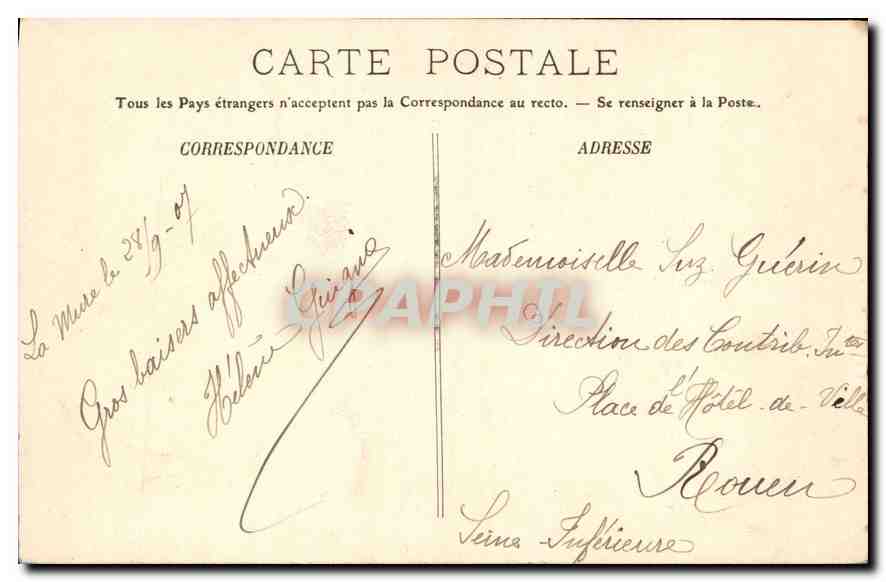 CARTE POSTALE
Tous les Pays étrangers n'acceptent pas la Correspondance au recto. — Se renseigner à la Poste.
CORRESPONDANCE
La Mure le 28/9-07
Gros baisers affectueux.
Hélène
ADRESSE
Mademoiselle Suz. Guérin
Direction des Contrib. In^tes
Place de l'Hôtel-de-Ville
Rouen
Seine-Inférieure
CPAPHIL